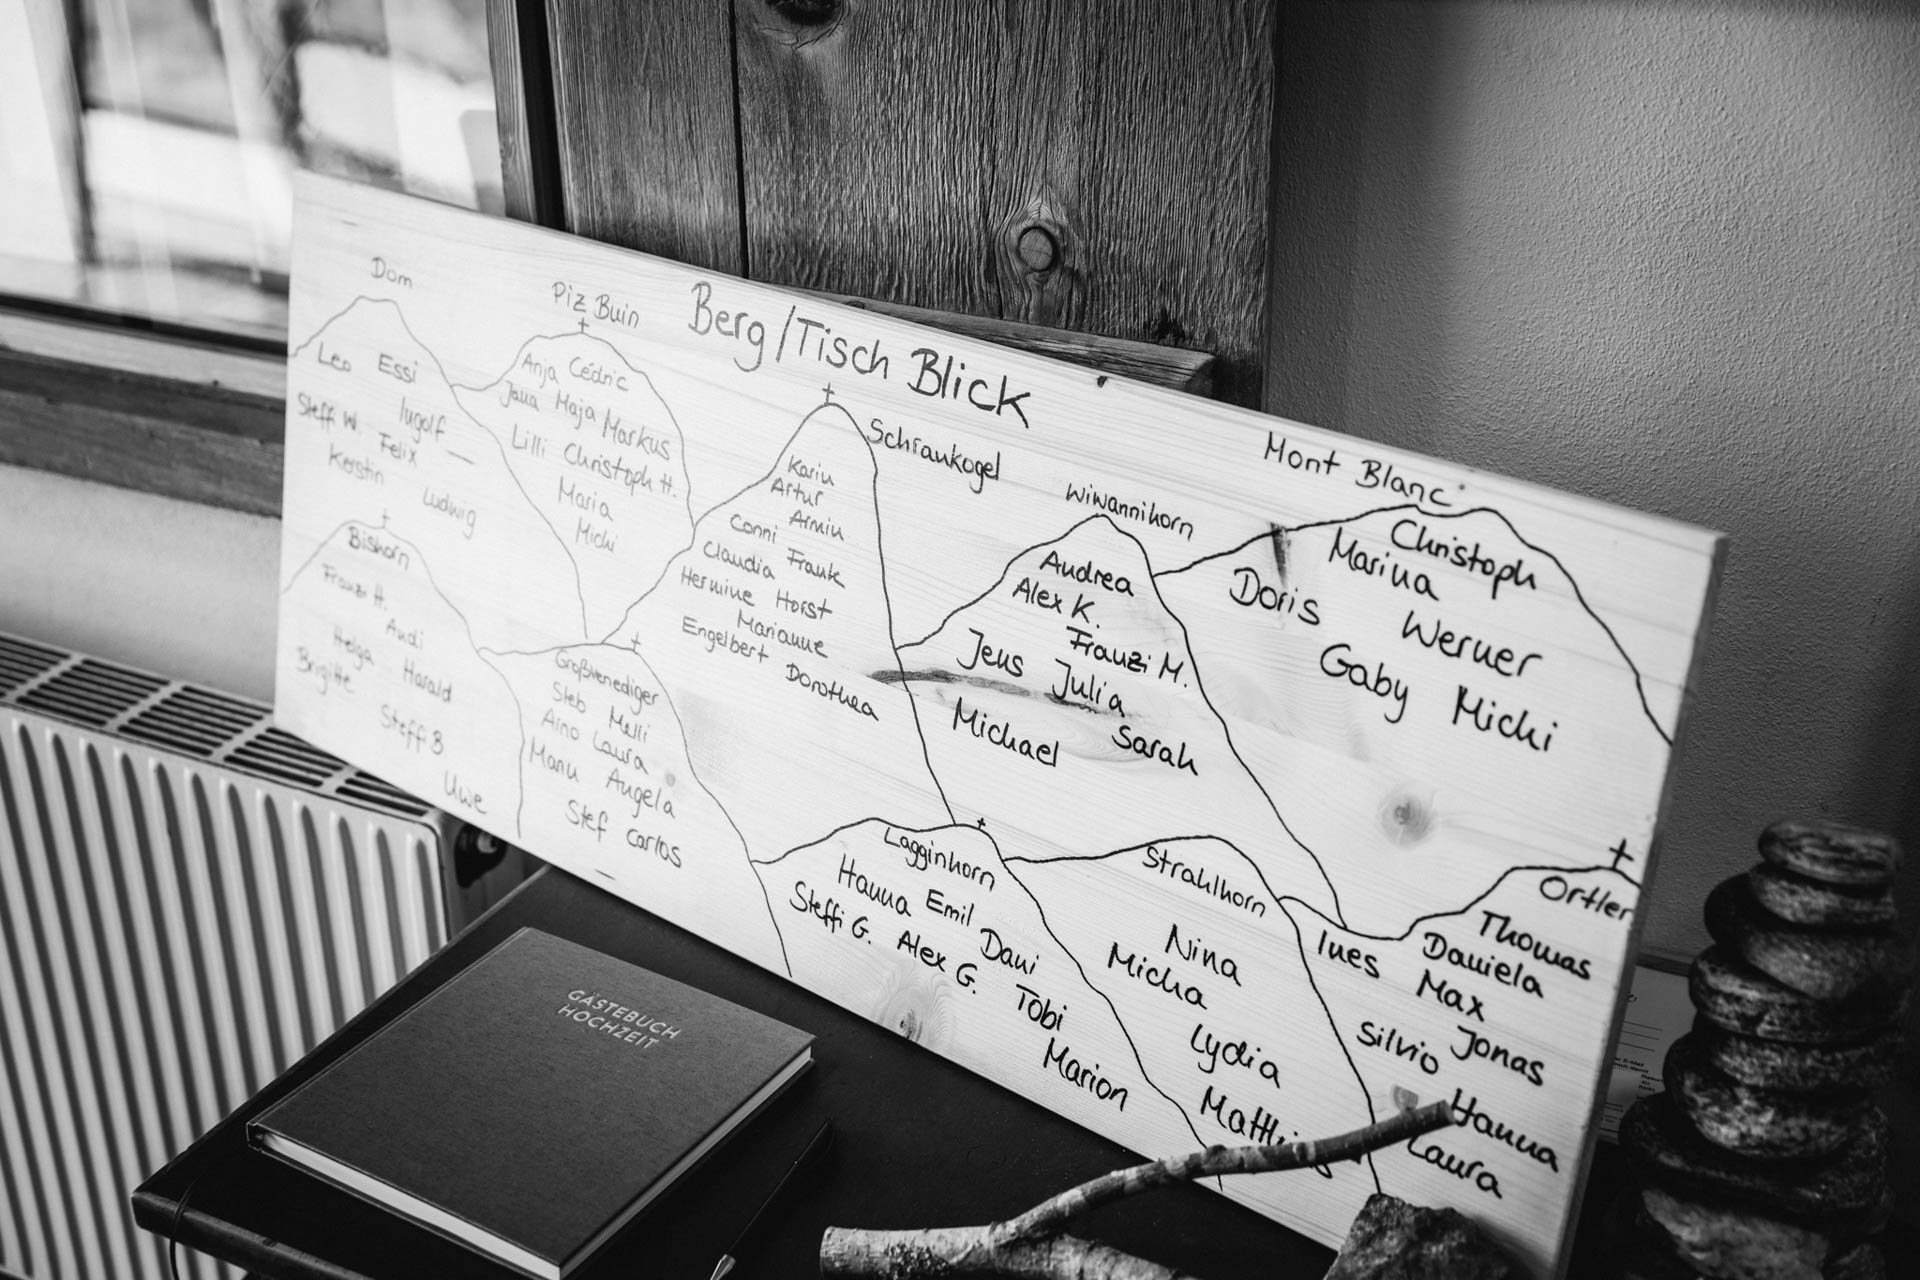 Berg/Tisch Blick
Dom
Leo Essi
Ingolf
Steff W. Felix
Kerstin
Ludwig
Piz Buin
Anja Cédric
Jana Maja Markus
Lilli Christoph H.
Maria
Michi
Schrankogel
Karin
Artur
Armin
Conni Frank
Claudia
Hermine Horst
Marianne
Engelbert
Dorothea
Wiwannihorn
Andrea
Alex K.
Franzi M.
Jens Julia
Michael Sarah
Mont Blanc
Christoph
Marina
Doris Werner
Gaby Michi
Bishorn
Franzi H.
Andi
Helga Harald
Brigitte
Steffi B
Uwe
Großvenediger
Steb Melli
Aino Laura
Manu Angela
Stef Carlos
Lagginhorn
Hanna Emil Dani
Steffi G. Alex G.
Tobi
Marion
Strahlhorn
Nina
Micha
Lydia
Ortler
Thomas
Ines Daniela
Max
Silvio Jonas
Hanna
Laura
GÄSTEBUCH
HOCHZEIT